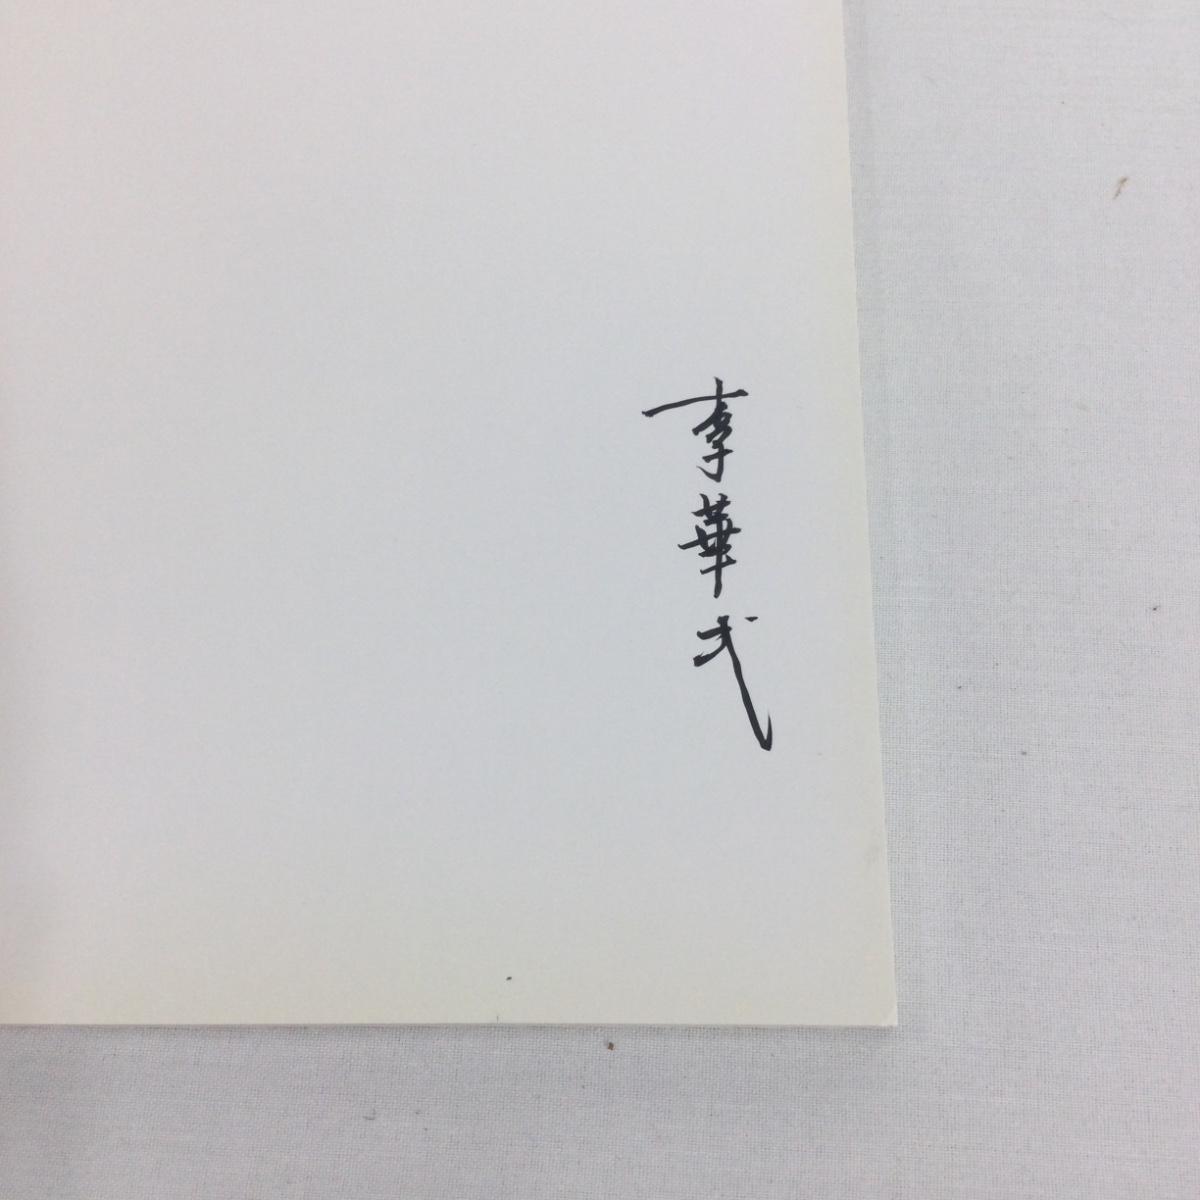 李華弌